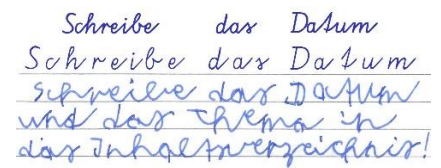 Schreibe das Datum
Schreibe das Datum
schreibe das Datum
und das Thema in
das Inhaltsverzeichnis!